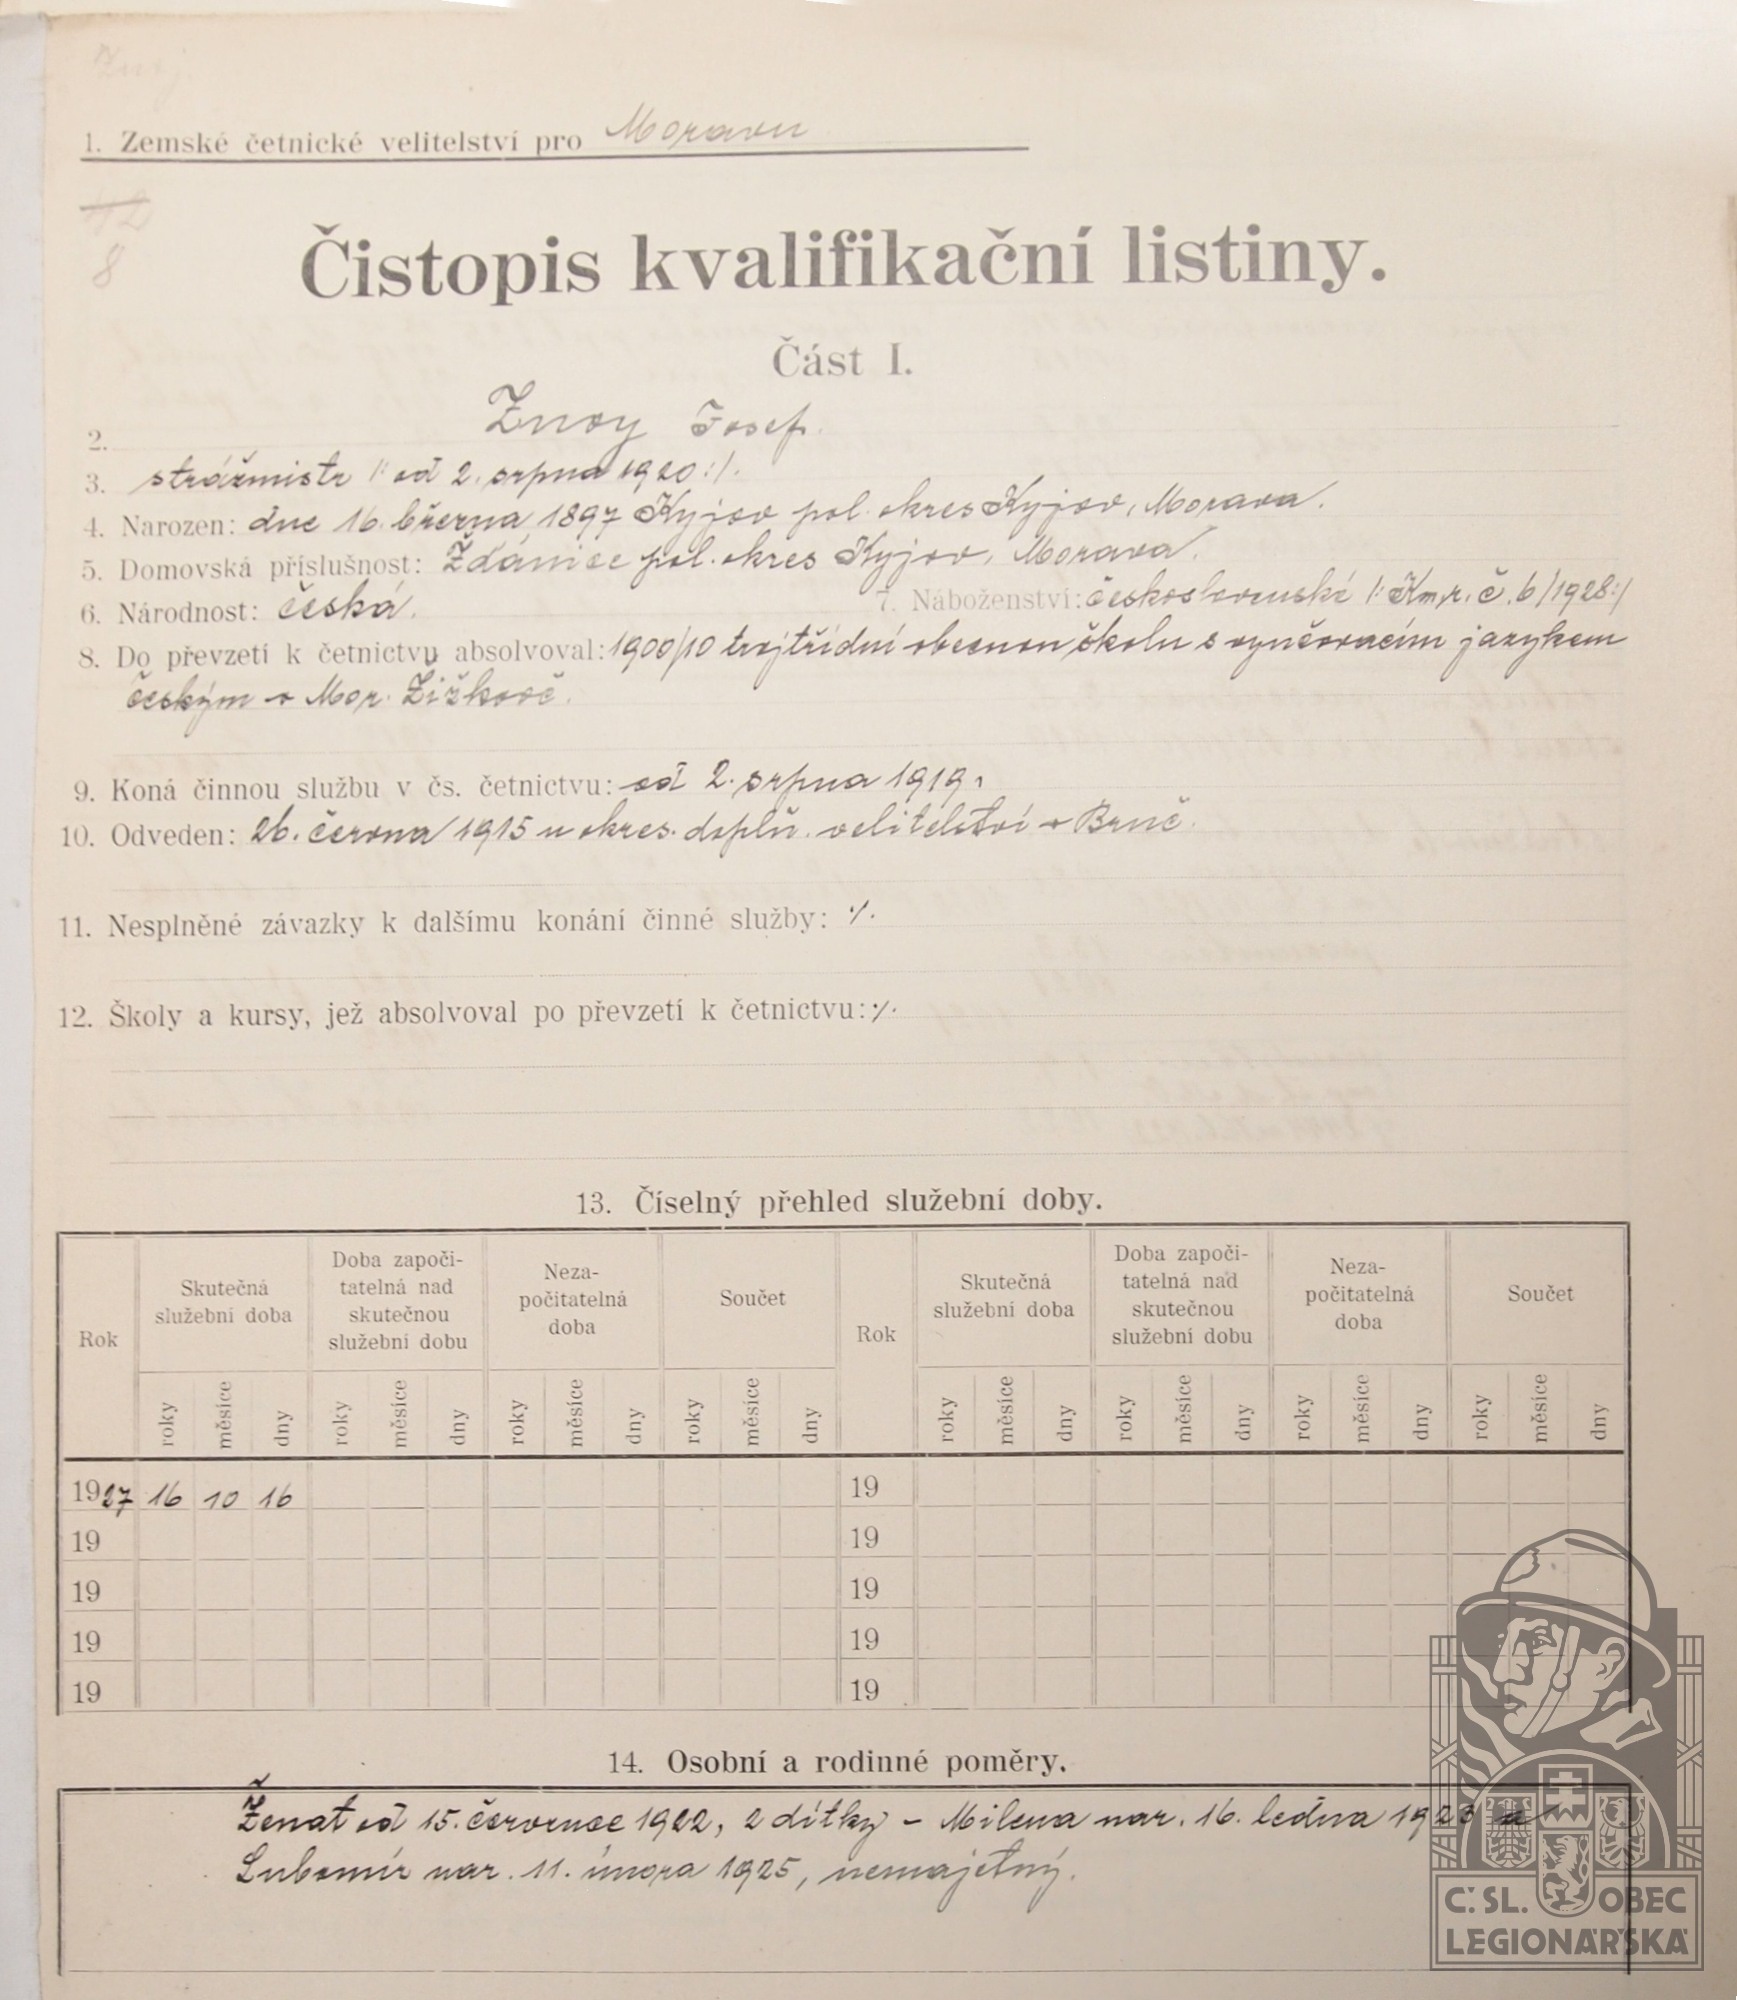 Znoj.
1. Zemské četnické velitelství pro Moravu
42
8
Čistopis kvalifikační listiny.
Část I.
2. Znoy Josef.
3. strážmistr /: od 2. srpna 1920 :/.
4. Narozen: dne 16. března 1897 Kyjov pol. okres Kyjov, Morava.
5. Domovská příslušnost: Ždánice pol. okres Kyjov, Morava.
6. Národnost: česká. 7. Náboženství: československé /: Km.r. č. 6/1928 :/
8. Do převzetí k četnictvu absolvoval: 1900/10 trojtřídní obecnou školu s vyučovacím jazykem
českým v Mor. Žižkově.
9. Koná činnou službu v čs. četnictvu: od 2. srpna 1919.
10. Odveden: 26. června 1915 u okres. doplň. velitelství v Brně.
11. Nesplněné závazky k dalšímu konání činné služby: ·/.
12. Školy a kursy, jež absolvoval po převzetí k četnictvu: ·/.
13. Číselný přehled služební doby.
Rok Skutečná služební doba Doba započi-tatelná nad skutečnou služební dobu Neza-počitatelná doba Součet Rok Skutečná služební doba Doba započi-tatelná nad skutečnou služební dobu Neza-počitatelná doba Součet
roky měsíce dny roky měsíce dny roky měsíce dny roky měsíce dny roky měsíce dny roky měsíce dny roky měsíce dny roky měsíce dny
1927 16 10 16 19
19 19
19 19
19 19
19 19
14. Osobní a rodinné poměry.
Ženat od 15. července 1922, 2 dítky – Milena nar. 16. ledna 1923 a
Lubomír nar. 11. února 1925, nemajetný.
Č. SL. OBEC
LEGIONÁŘSKÁ